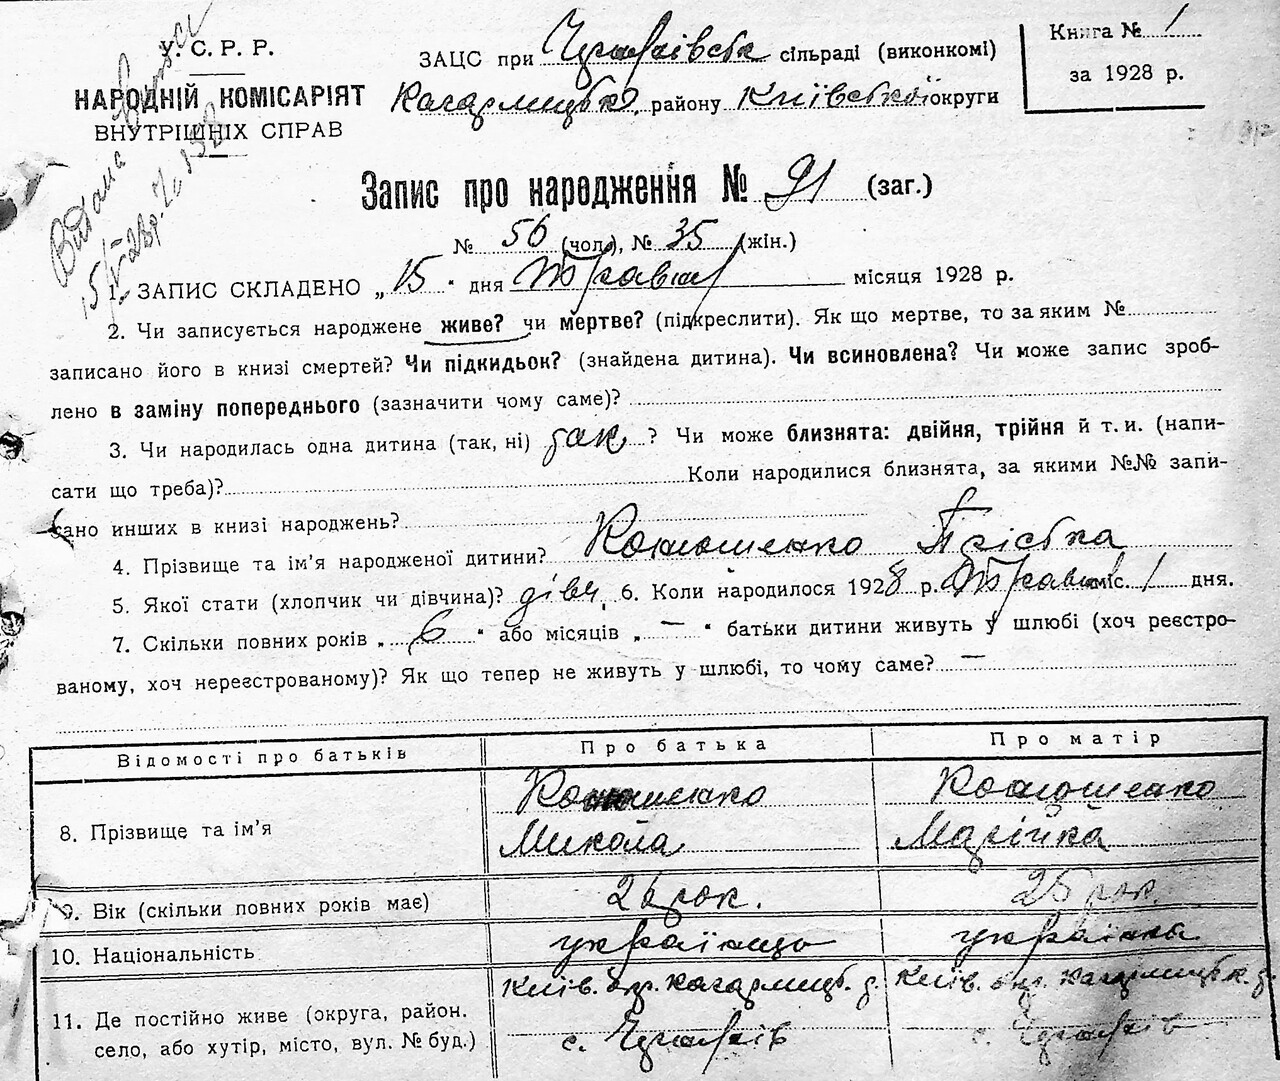 У. С. Р. Р.
НАРОДНІЙ КОМІСАРІЯТ
ВНУТРІШНІХ СПРАВ
Видана
ЗАЦС при сільраді (виконкомі)
Кагарлицько району Київської округи
Книга № 1
за 1928 р.
Запис про народження № 91 (заг.)
№ 56 (чол.), № 35 (жін.)
1. ЗАПИС СКЛАДЕНО „15" дня Травня місяця 1928 р.
2. Чи записується народжене живе? чи мертве? (підкреслити). Як що мертве, то за яким №
записано його в книзі смертей? Чи підкидьок? (знайдена дитина). Чи всиновлена? Чи може запис зроб-
лено в заміну попереднього (зазначити чому саме)?
3. Чи народилась одна дитина (так, ні) так ? Чи може близнята: двійня, трійня й т. и. (напи-
сати що треба)? Коли народилися близнята, за якими №№ запи-
сано инших в книзі народжень?
4. Прізвище та ім'я народженої дитини? Коношенко Пріська
5. Якої стати (хлопчик чи дівчина)? дівч. 6. Коли народилося 1928 р. Травня міс. 1 дня.
7. Скільки повних років „ 6 " або місяців „ — " батьки дитини живуть у шлюбі (хоч реєстро-
ваному, хоч нереєстрованому)? Як що тепер не живуть у шлюбі, то чому саме? —
Відомості про батьків Про батька Про матір
Коношенко Коношенко
8. Прізвище та ім'я Микола Марійка
9. Вік (скільки повних років має) 26 рок. 25 рок.
10. Національність українць українка
Київ. окр. Кагарлицьк. р. Київ. окр. Кагарлицьк. р.
11. Де постійно живе (округа, район.
село, або хутір, місто, вул. № буд.) с. с.